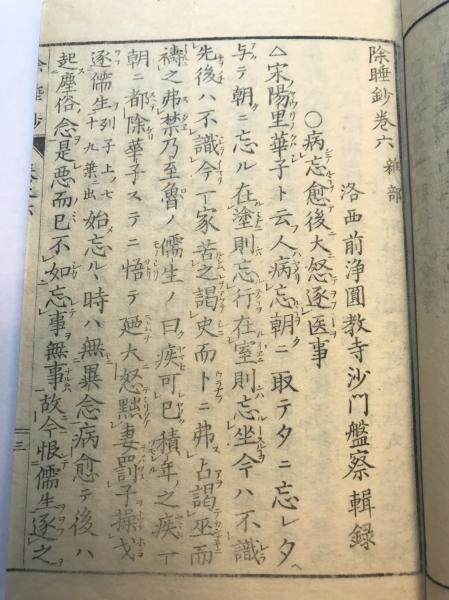 除睡鈔巻六 雜部
洛西前浄圓教寺沙門鑑察輯録
○病忘愈後大怒逐医事
△宋陽里華子ト云人病忘朝ニ取テタニ忘レタ
与テ朝ニ忘ル在塗則忘行在室則忘坐今ハ不識
先後ハ不識今一家苦之謁史而トニ弗占謁巫而
禱之弗禁乃至魯ノ儒生ノ曰疾可已積年之疾一
朝ニ都除華子ステニ悟テ廼大怒黜妻罰子操戈
逐儒生列子上ノ七十九葉ニ出始忘ル時ハ無異念病愈テ後ハ
起塵俗念是悪而已不如忘事無事故今恨儒生逐之